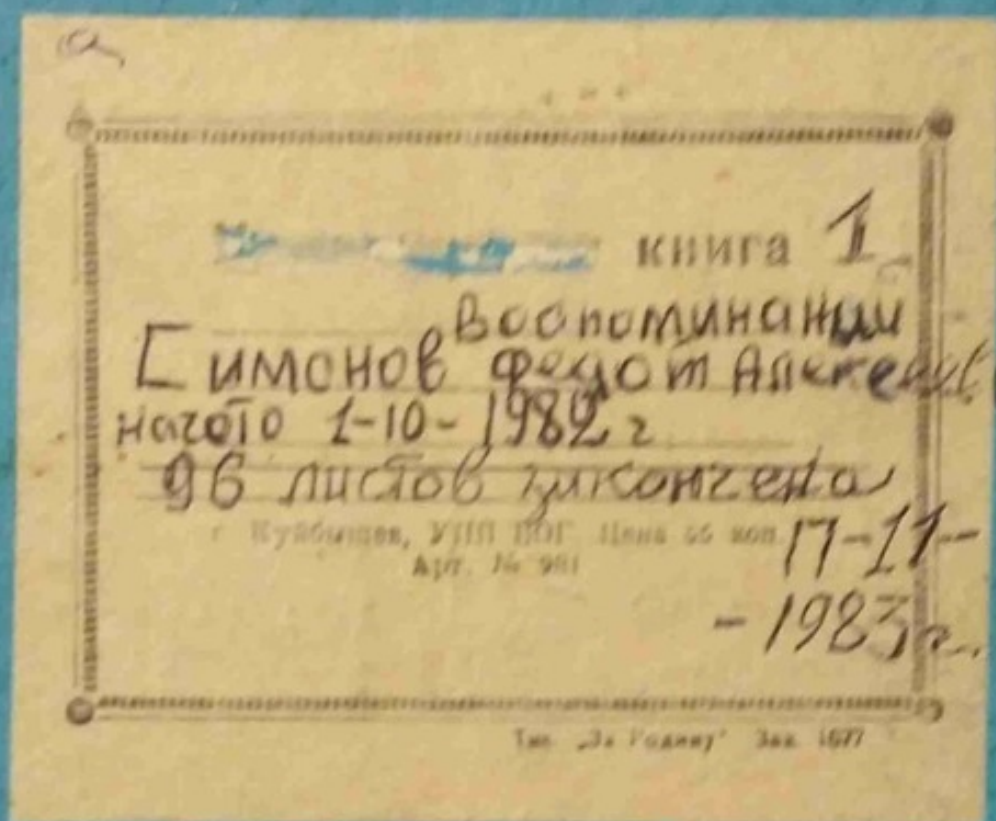 книга 1
Воспоминании
Симонов Федот Алексеев
начато 1-10-1982 г
96 листов закончена
г. Куйбышев, УПП ВОГ Цена 55 коп.
17-11-
Арт. № 981
-1983 г.
Тип. „За Родину" Зак. 1677